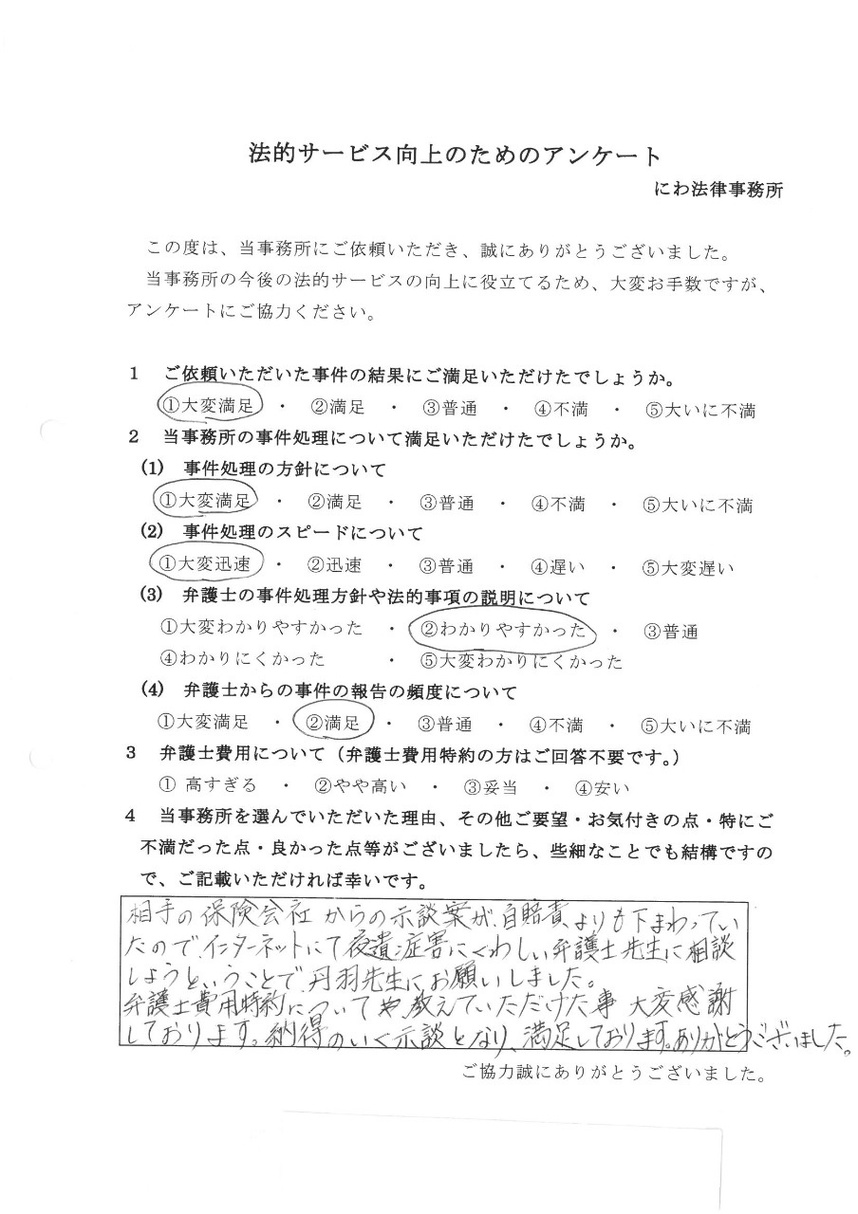 法的サービス向上のためのアンケート
にわ法律事務所
この度は、当事務所にご依頼いただき、誠にありがとうございました。
当事務所の今後の法的サービスの向上に役立てるため、大変お手数ですが、
アンケートにご協力ください。
1 ご依頼いただいた事件の結果にご満足いただけたでしょうか。
①大変満足 ・ ②満足 ・ ③普通 ・ ④不満 ・ ⑤大いに不満
2 当事務所の事件処理について満足いただけたでしょうか。
(1) 事件処理の方針について
①大変満足 ・ ②満足 ・ ③普通 ・ ④不満 ・ ⑤大いに不満
(2) 事件処理のスピードについて
①大変迅速 ・ ②迅速 ・ ③普通 ・ ④遅い ・ ⑤大変遅い
(3) 弁護士の事件処理方針や法的事項の説明について
①大変わかりやすかった ・ ②わかりやすかった ・ ③普通
④わかりにくかった ・ ⑤大変わかりにくかった
(4) 弁護士からの事件の報告の頻度について
①大変満足 ・ ②満足 ・ ③普通 ・ ④不満 ・ ⑤大いに不満
3 弁護士費用について（弁護士費用特約の方はご回答不要です。）
① 高すぎる ・ ②やや高い ・ ③妥当 ・ ④安い
4 当事務所を選んでいただいた理由、その他ご要望・お気付きの点・特にご
不満だった点・良かった点等がございましたら、些細なことでも結構ですの
で、ご記載いただければ幸いです。
相手の保険会社からの示談案が、自賠責よりも下まわってい
たので、インターネットにて後遺症害にくわしい弁護士先生に相談
しようということで、丹羽先生にお願いしました。
弁護士費用特約についてや、教えていただけた事 大変感謝
しております。納得のいく示談となり、満足しております。ありがとうございました。
ご協力誠にありがとうございました。